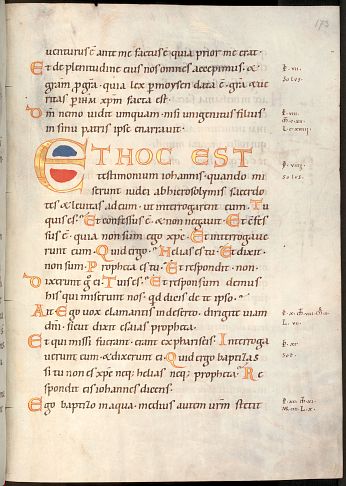 173
uenturus ē ante me factus ē quia prior me erat·
Et de plenitudine eius nos omnes accepimus· &
grām p grā· quia lex p moysen data ē· grā & ue
ritas p ihm xpm facta est·
Dm̄ nemo uidit umquam· nisi unigenitus filius
in sinu patris ipse enarrauit·
ET HOC EST
testimonium iohannis· quando mi
serunt iudei ab hierosolymis sacerdo
tes & leuitas ad eum· ut interrogarent eum· Tu
quis es· Et confessus ē· & non negauit· Et cfes
sus ē· quia non sum ego xpc· Et interrogaue
runt eum· Quid ergo· Helias es tu· Et dixit·
non sum· Propheta es tu· Et respondit· non·
Dixerunt g ei· Tu is es· Et responsum demus
his qui miserunt nos· qd dicis de te ipso·
Ait· Ego uox clamantis in deserto· dirigite uiam
dni· sicut dixit esaias propheta·
Et qui missi fuerant· erant ex phariseis· Interroga
uerunt eum· & dixerunt ei· Quid ergo baptizas
si tu non es xpc neq; helias neq; propheta· Re
spondit eis iohannes dicens·
Ego baptizo in aqua· medius autem urm̄ stetit